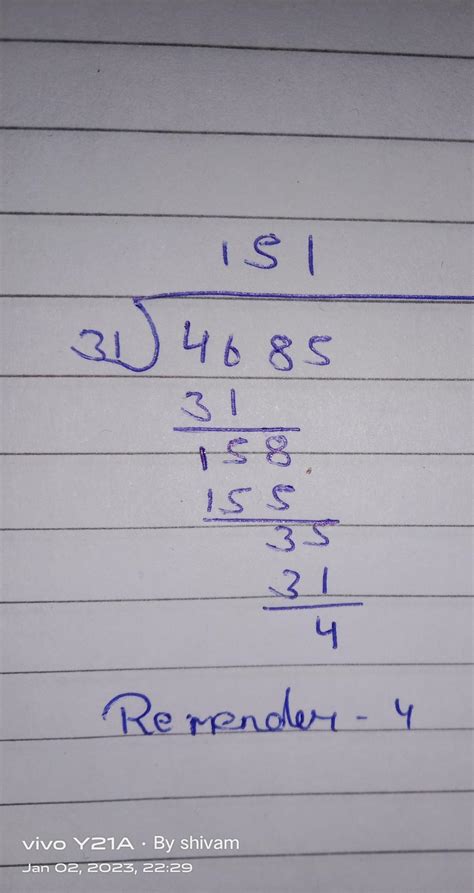 151
31) 4685
31
158
155
35
31
4
Remender - 4
vivo Y21A · By shivam
Jan 02, 2023, 22:29